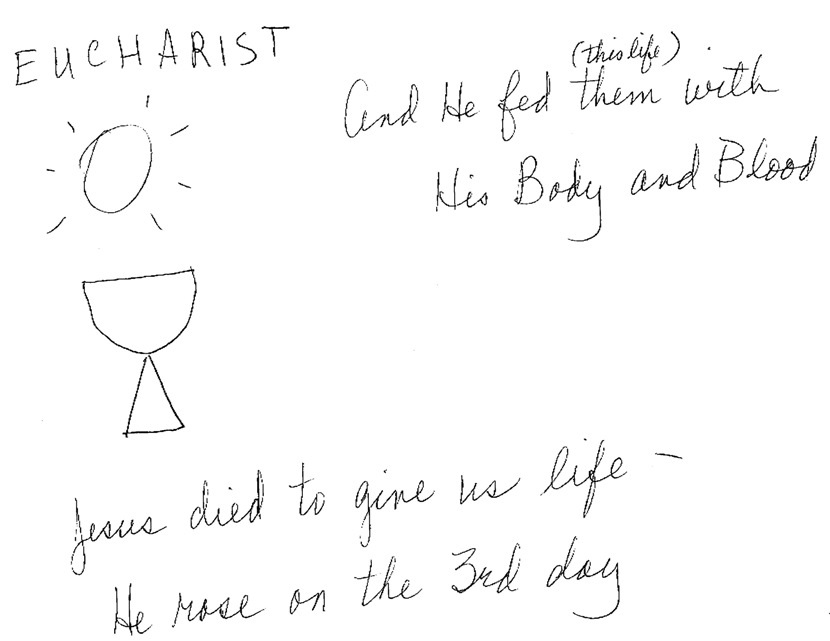 EUCHARIST
(this life)
And He fed them with
His Body and Blood
Jesus died to give us life –
He rose on the 3rd day